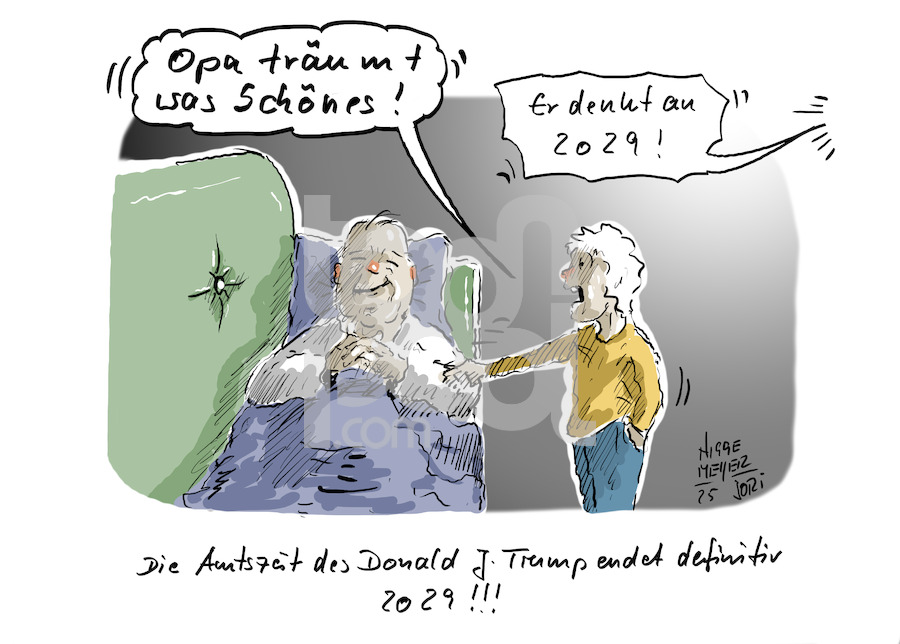 Opa träumt
was Schönes!
Er denkt an
2029!
toonpool
.com
NIGGE
MEYER
25 JORI
Die Amtszeit des Donald J. Trump endet definitiv
2029!!!